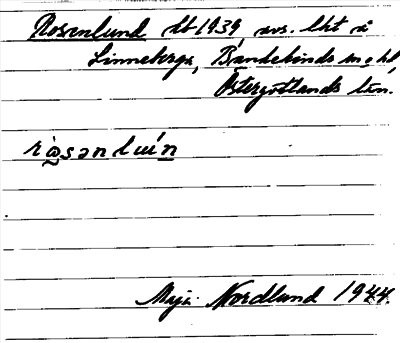 Rosenlund db 1939, avs. lht å
Linneberga, Bandekinds m o hd,
Östergötlands län.
Maja Nordlund 1944.